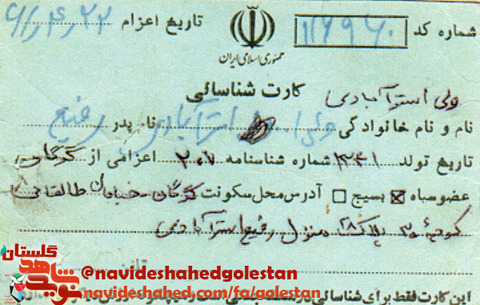 شماره کد ۱۱۶۹۶۰ تاریخ اعزام ۶۱/۴/۲۲
جمهوری اسلامی ایران
کارت شناسائی
ولی استرآبادی
نام و نام خانوادگی ولی استرآبادی نام پدر رفیع
تاریخ تولد ۱۳۳۱ شماره شناسنامه ۲۰۷ اعزامی از گرگان
عضو سپاه ☒ بسیج ☐ آدرس محل سکونت گرگان خیابان طالقانی
کوچه ۳۰ پلاک ۲۸ منزل رفیع استرآبادی
گلستان
نوید شاهد
@navideshahedgolestan
navideshahed.com/fa/golestan
این کارت فقط برای شناسائی